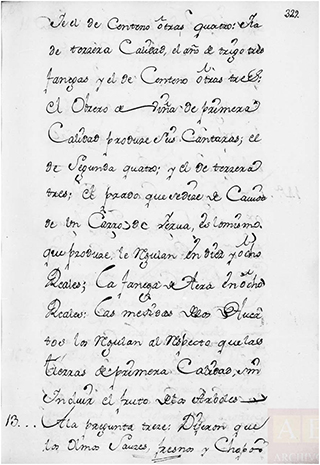 322.
Ȳ el de Centeno otras quatro: la
de terzera Calidad, el año de trigo tres
fanegas y el de Centeno otras tres
El Obrero de Viña de primera
Calidad produze seis Cantaras; el
de Segunda quatro; y el de terzera
tres; el prado que se dize de Cavida
de un Carro de Yerva, es lo mismo
que produze, le regulan en diez y ocho
Reales; La fanega de Aera en ocho
Reales: Las medidas de los Huer
tos los regulan al respecto que las
tierras de primera Calidad, sin
Incluir el fruto de los Arboles
13... A la pregunta treze: Dijeron que
los Olmos Sauzes, fresnos y Chopos
ARCHIVOS